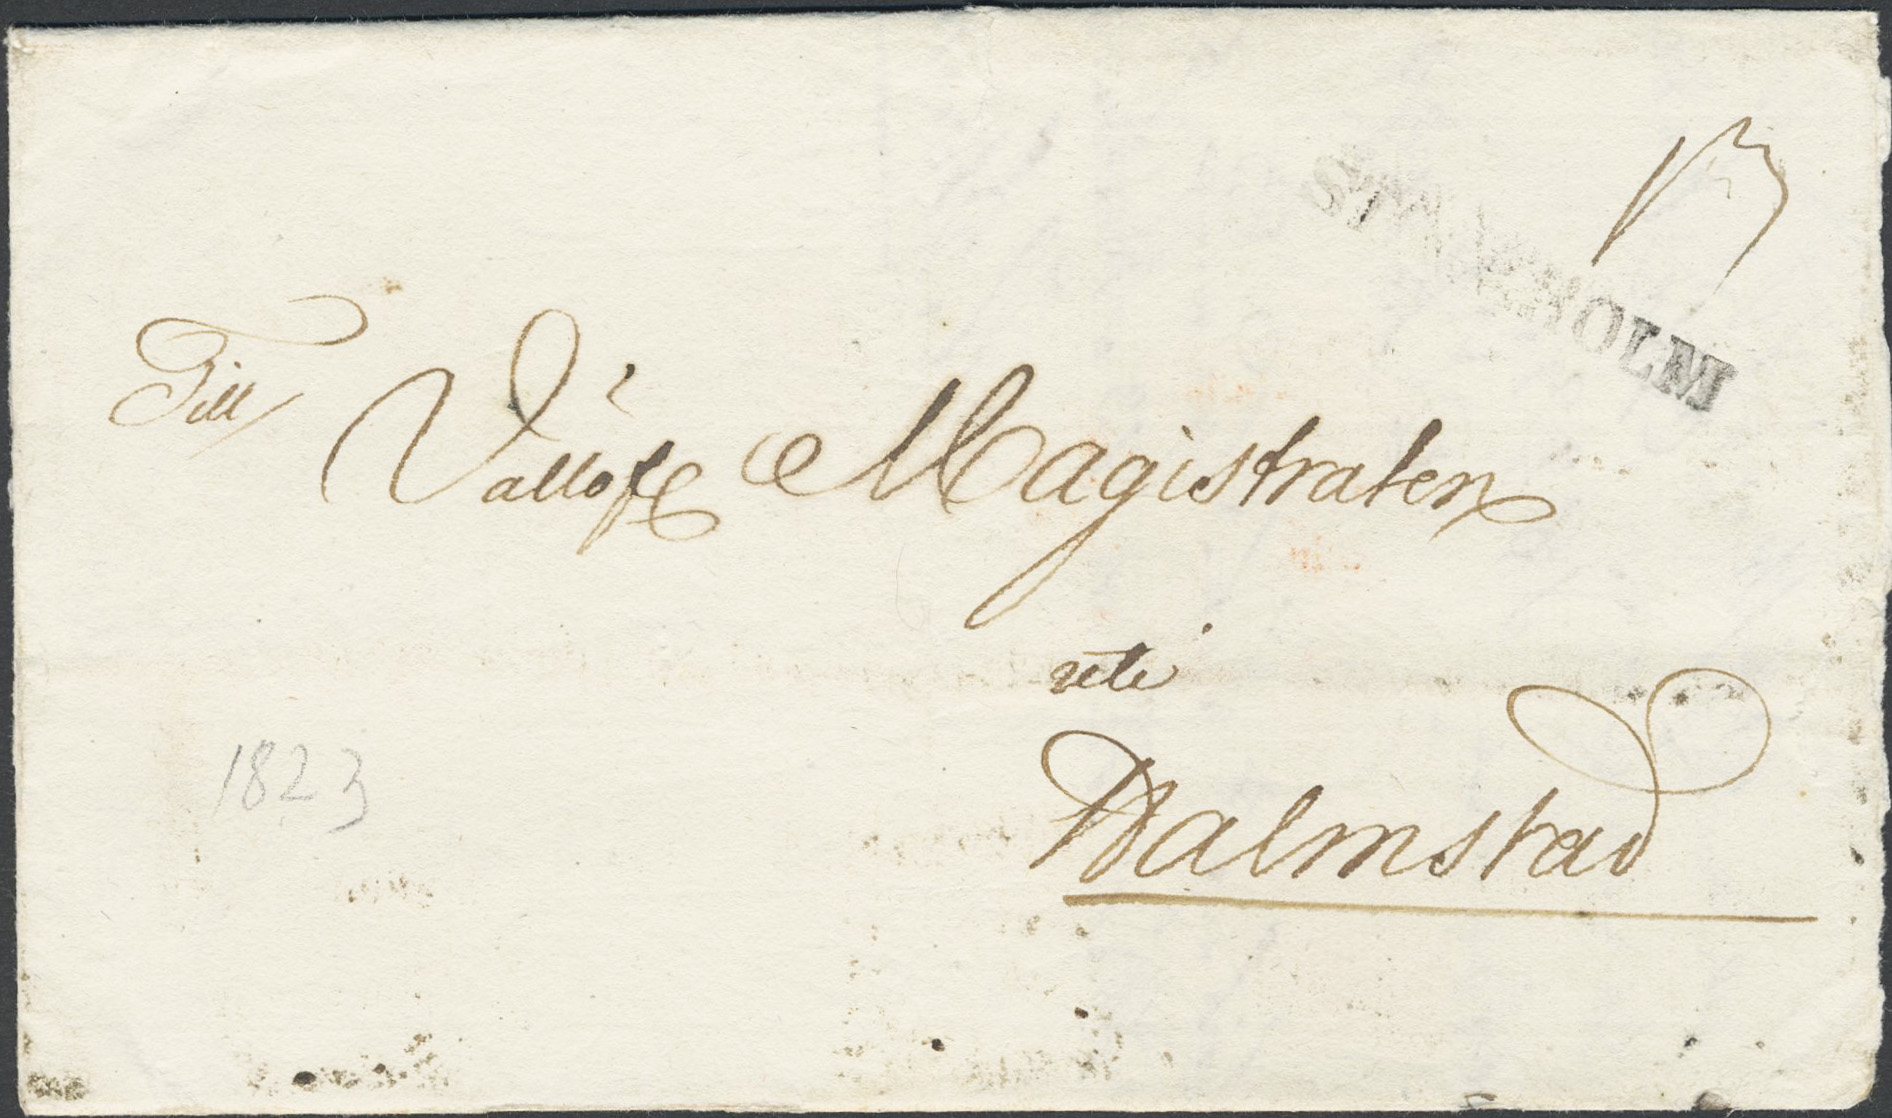 STOCKHOLM
13
Till
Vällofl Magistraten
uti
Halmstad
1823